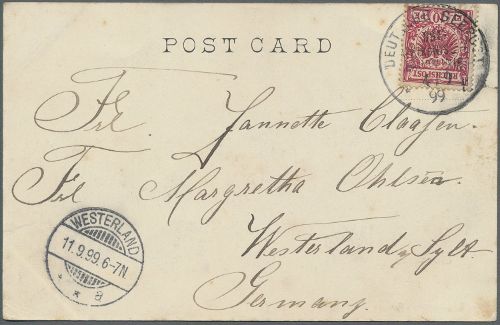 POST CARD
DEUT
REICHSPOST
10
99
Frl. Jannette Claassen.
Frl. Margretha Ohlsen.
Westerland, Sylt.
Germany.
WESTERLAND
11.9.99.6-7N
* * a